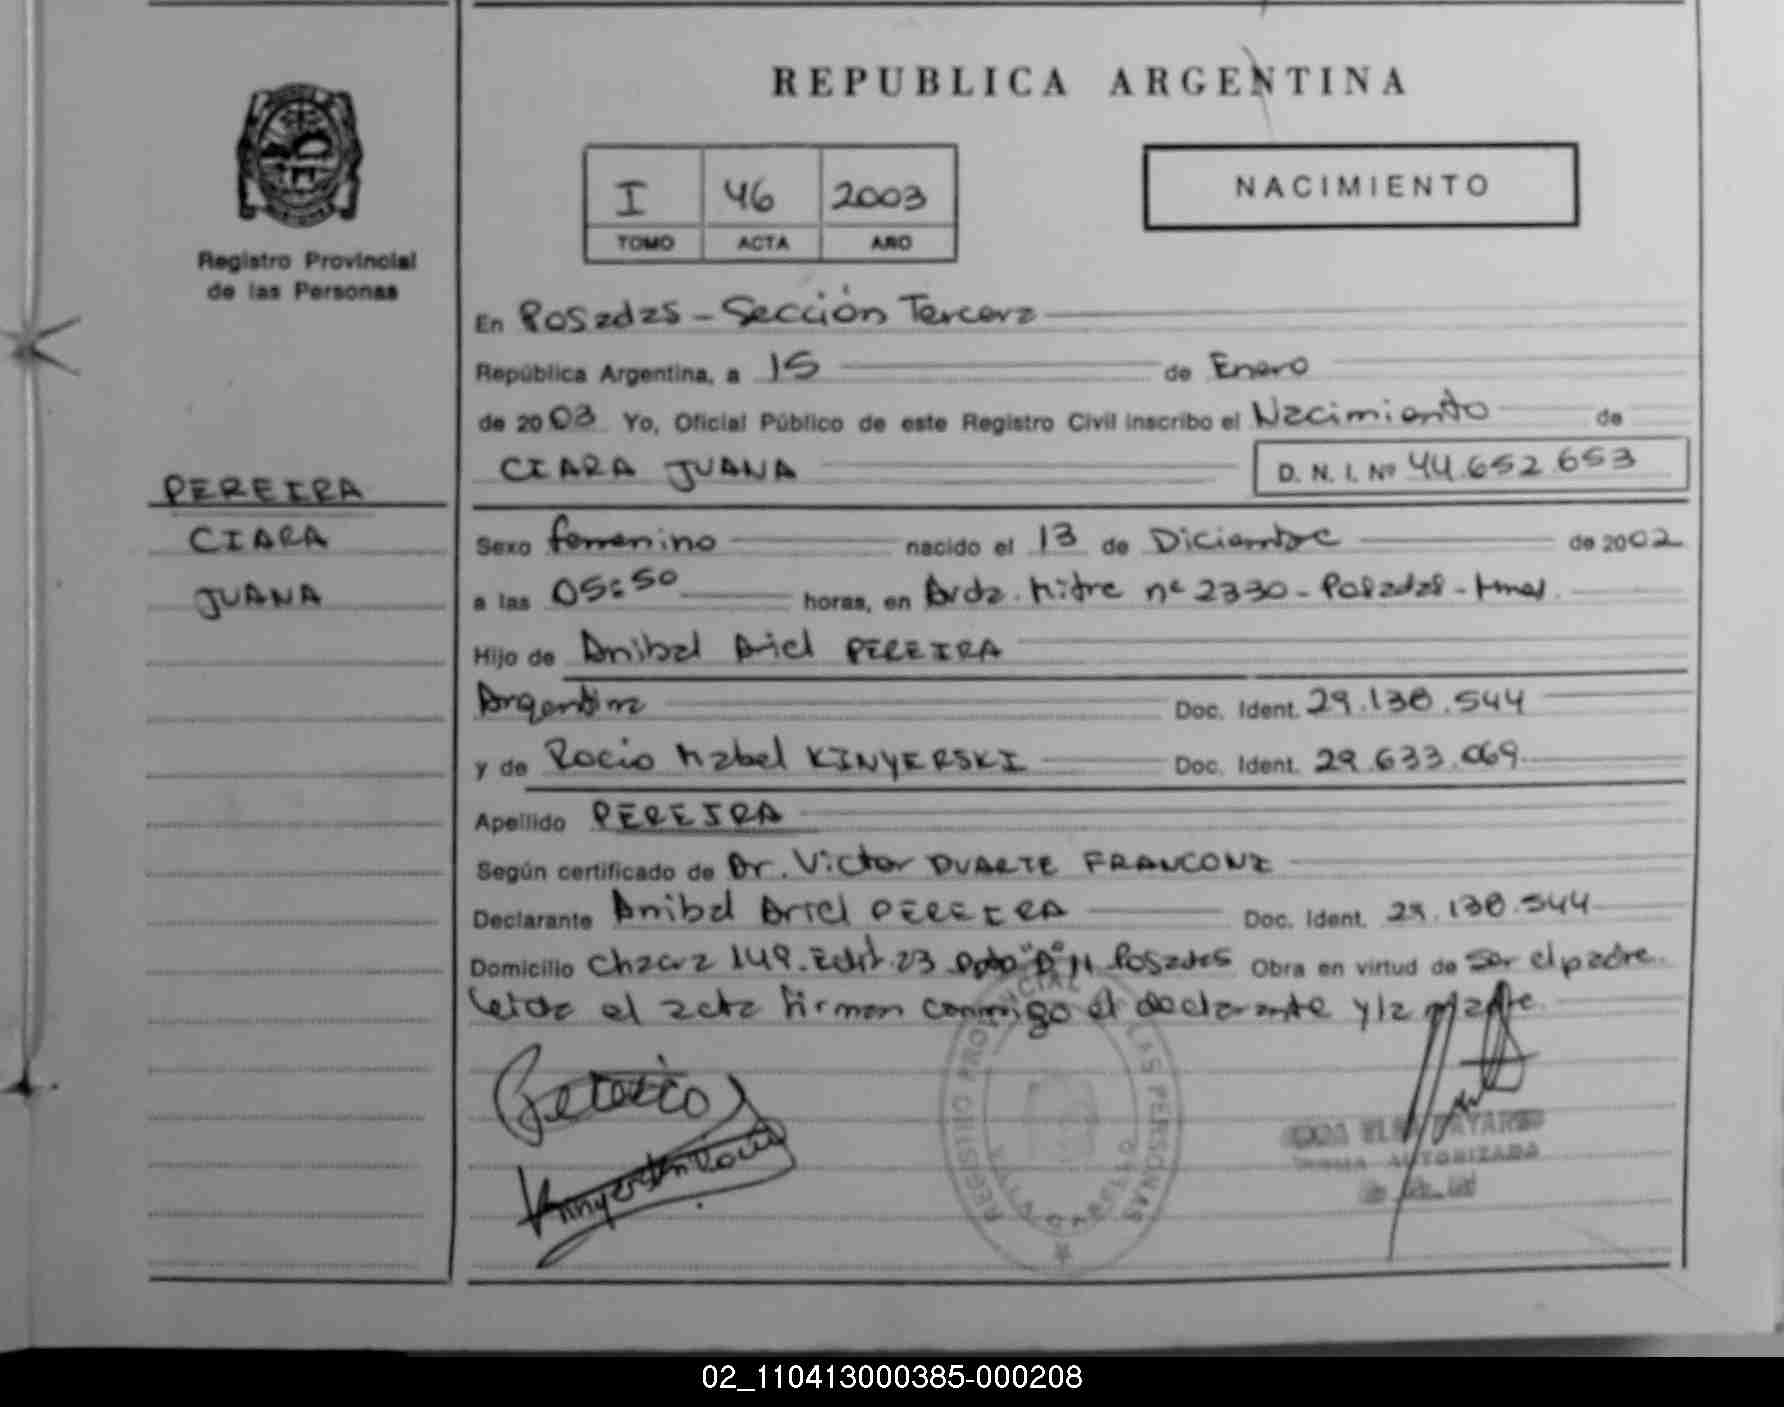 REPUBLICA ARGENTINA
I 46 2003
TOMO ACTA AÑO
NACIMIENTO
Registro Provincial
de las Personas
PEREIRA
CIARA
JUANA
En Posadas - Sección Tercera
República Argentina, a 15 de Enero
de 2003 Yo, Oficial Público de este Registro Civil inscribo el Nacimiento de
CIARA JUANA D. N. I. Nº 44.652.653
Sexo femenino nacido el 13 de Diciembre de 2002
a las 05:50 horas, en Avda. Mitre nº 2330 - Posadas - Mnes.
Hijo de Anibal Ariel PEREIRA
Argentina Doc. Ident. 29.138.544
y de Rocio Mabel KINYERSKI Doc. Ident. 29.633.069
Apellido PEREIRA
Según certificado de Dr. Victor DUARTE FRANCONI
Declarante Anibal Ariel PEREIRA Doc. Ident. 29.138.544
Domicilio Chacra 149. Edif. 23 Dpto "D" Posadas Obra en virtud de ser el padre.
Leida el acta firman conmigo el declarante y la madre.
REGISTRO PROVINCIAL DE LAS PERSONAS
AUTORIZADA
02_110413000385-000208